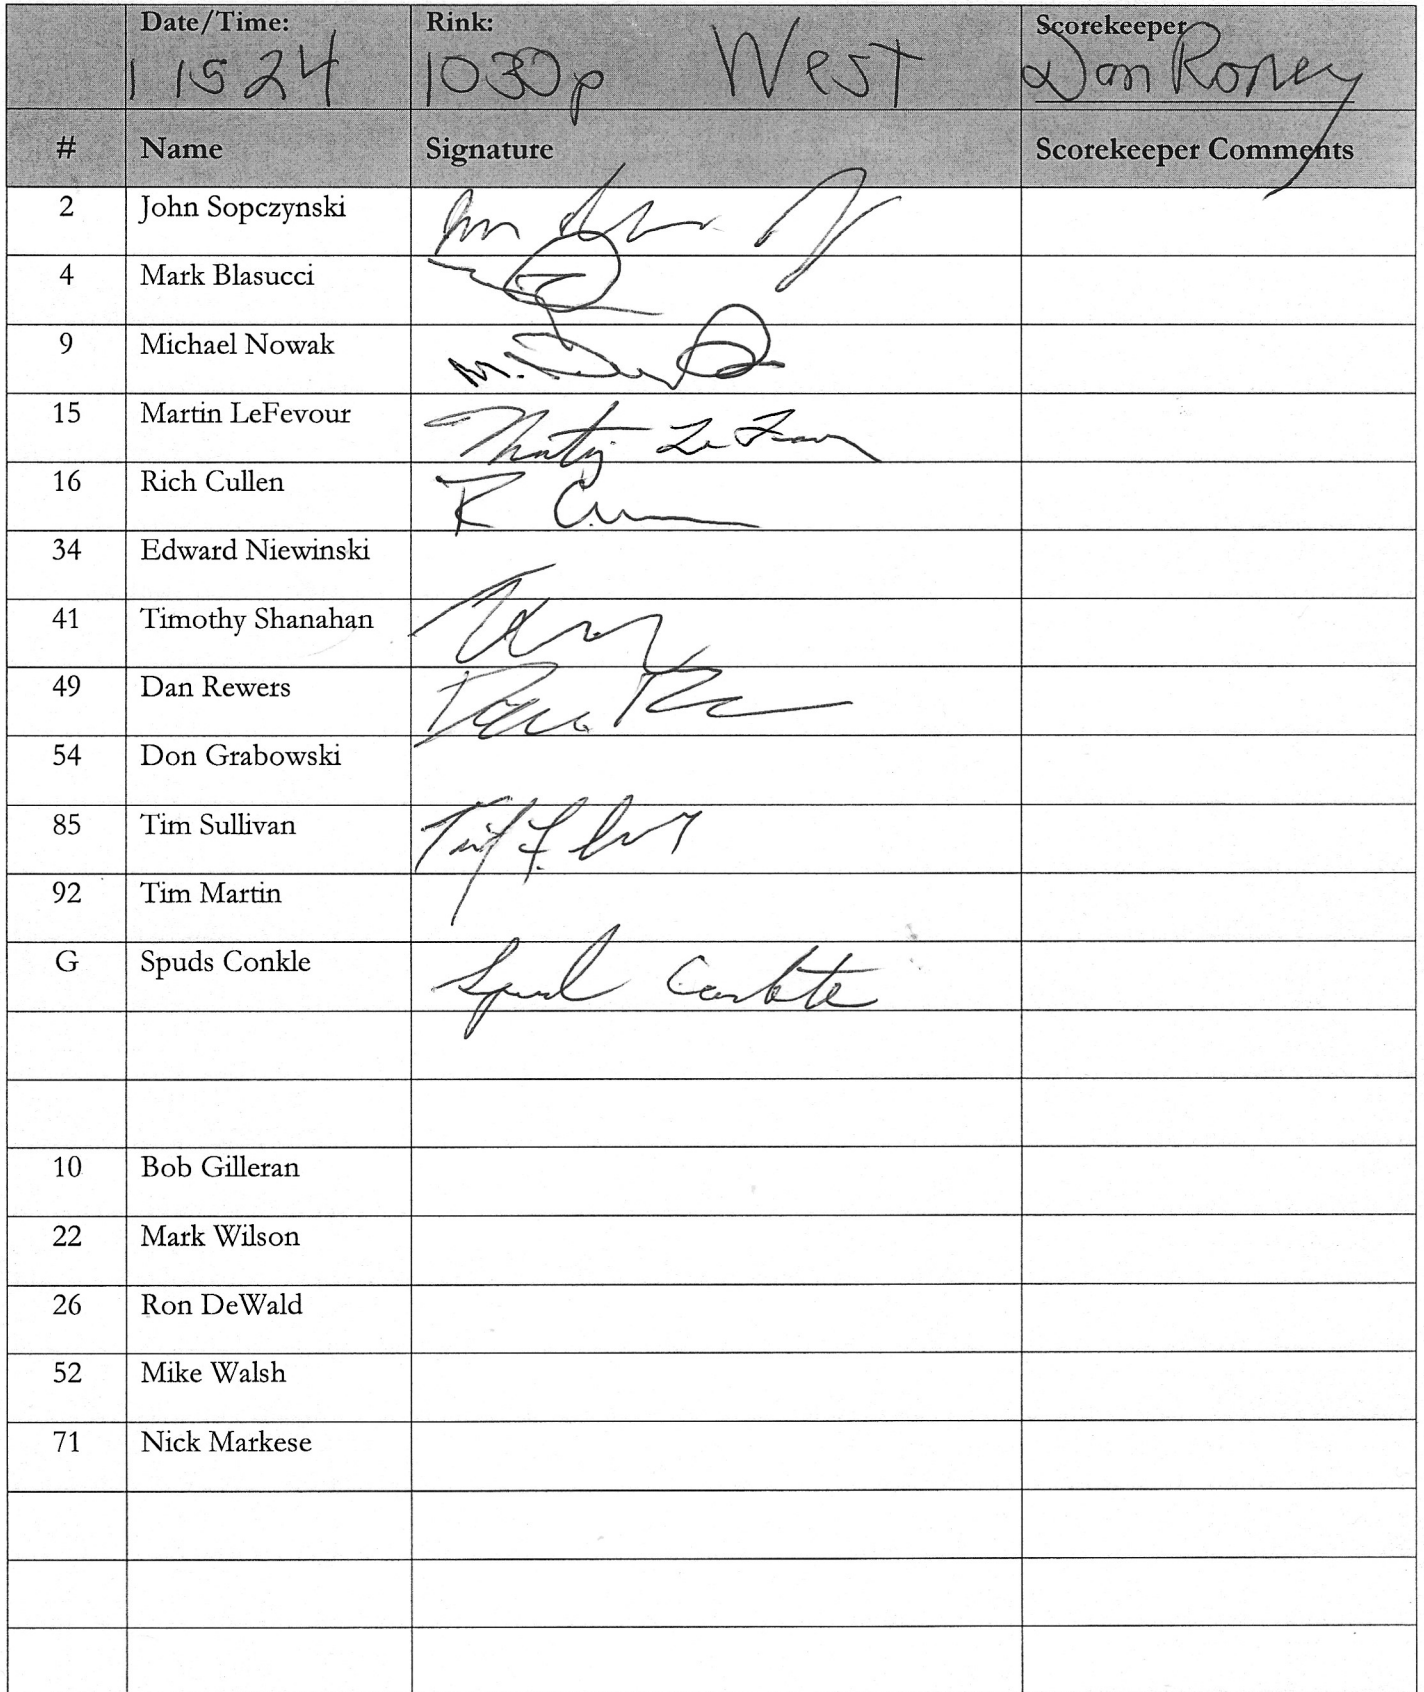 Date/Time: Rink: Scorekeeper
1 15 24 1030p West Dan Roney
# Name Signature Scorekeeper Comments
2 John Sopczynski
4 Mark Blasucci
9 Michael Nowak M.
15 Martin LeFevour
16 Rich Cullen R
34 Edward Niewinski
41 Timothy Shanahan
49 Dan Rewers
54 Don Grabowski
85 Tim Sullivan
92 Tim Martin
G Spuds Conkle
10 Bob Gilleran
22 Mark Wilson
26 Ron DeWald
52 Mike Walsh
71 Nick Markese